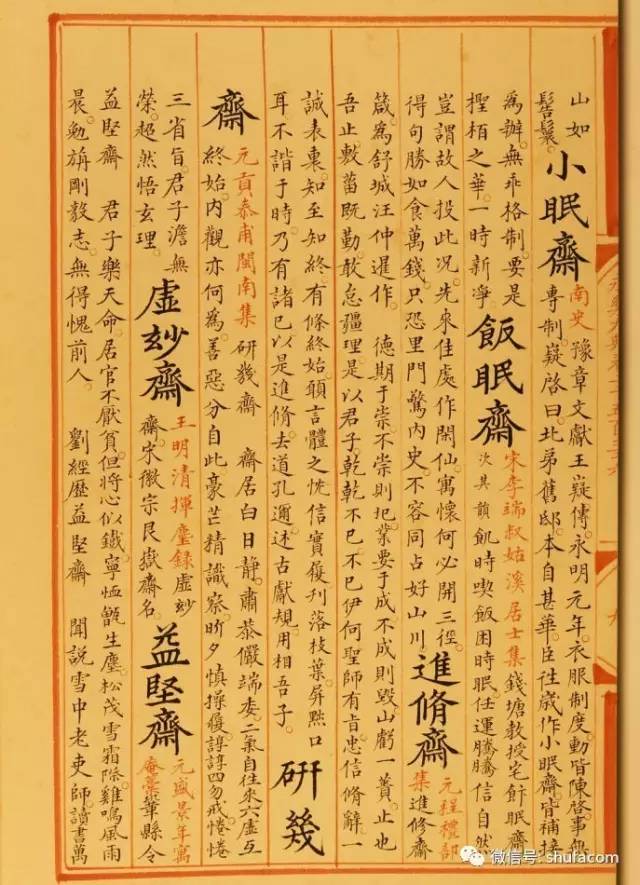 山如
髻鬟。
小眠齋
南史豫章文獻王嶷傳。永明元年。衣服制度。動皆陳啓。事無
專制。嶷啓曰。北弟舊邸。本自甚華。臣往歲作小眠齋。皆補接
爲辦。無乖格制。要是
檉栢之華。一時新淨。
飯眠齋
宋李端叔姑溪居士集錢塘教授宅飰眠齋
次其韻飢時喫飯困時眠。任運騰騰信自然。
豈謂故人投此况。先來佳處作閑仙。寓懷何必開三徑。
得句勝如食萬錢。只恐里門驚内史。不容同占好山川。
進脩齋
元程禮部
集進修齋
箴爲舒城汪仲暹作 德期于崇。不崇則圯。業要于成。不成則毀。山虧一簣。止也
吾止。敷菑既勤。敢怠疆理。是以君子。乾乾不已。不已伊何。聖師有旨。忠信脩辭。一
誠表裏。知至知終。有條終始。頤言體之。忱信實履。刋落枝葉。屏黜口
耳。不諧于時。乃有諸已。以是進脩。去道孔邇。述古獻規。用相吾子。
研幾
齋
元貢泰甫閩南集 研幾齋 齋居白日靜。肅恭儼端委。二氣自往來。六虛互
終始。内觀亦何爲。善惡分自此。豪芒精識察。昕夕慎操履。諄諄四勿戒。惓惓
三省旨。君子澹無
榮。超然悟玄理。
虛玅齋
王明清揮麈錄虛玅
齋。宋徽宗艮嶽齋名。
益堅齋
元盛景年寓
庵藁葦縣令
益堅齋 君子樂天命。居官不厭貧。但將心似鐵。寧恤甑生塵。松茂雪霜際。雞鳴風雨
晨。勉旃剛毅志。無得愧前人。 劉經歷益堅齋 聞說雪中老吏師。讀書萬
微信号: shufacom